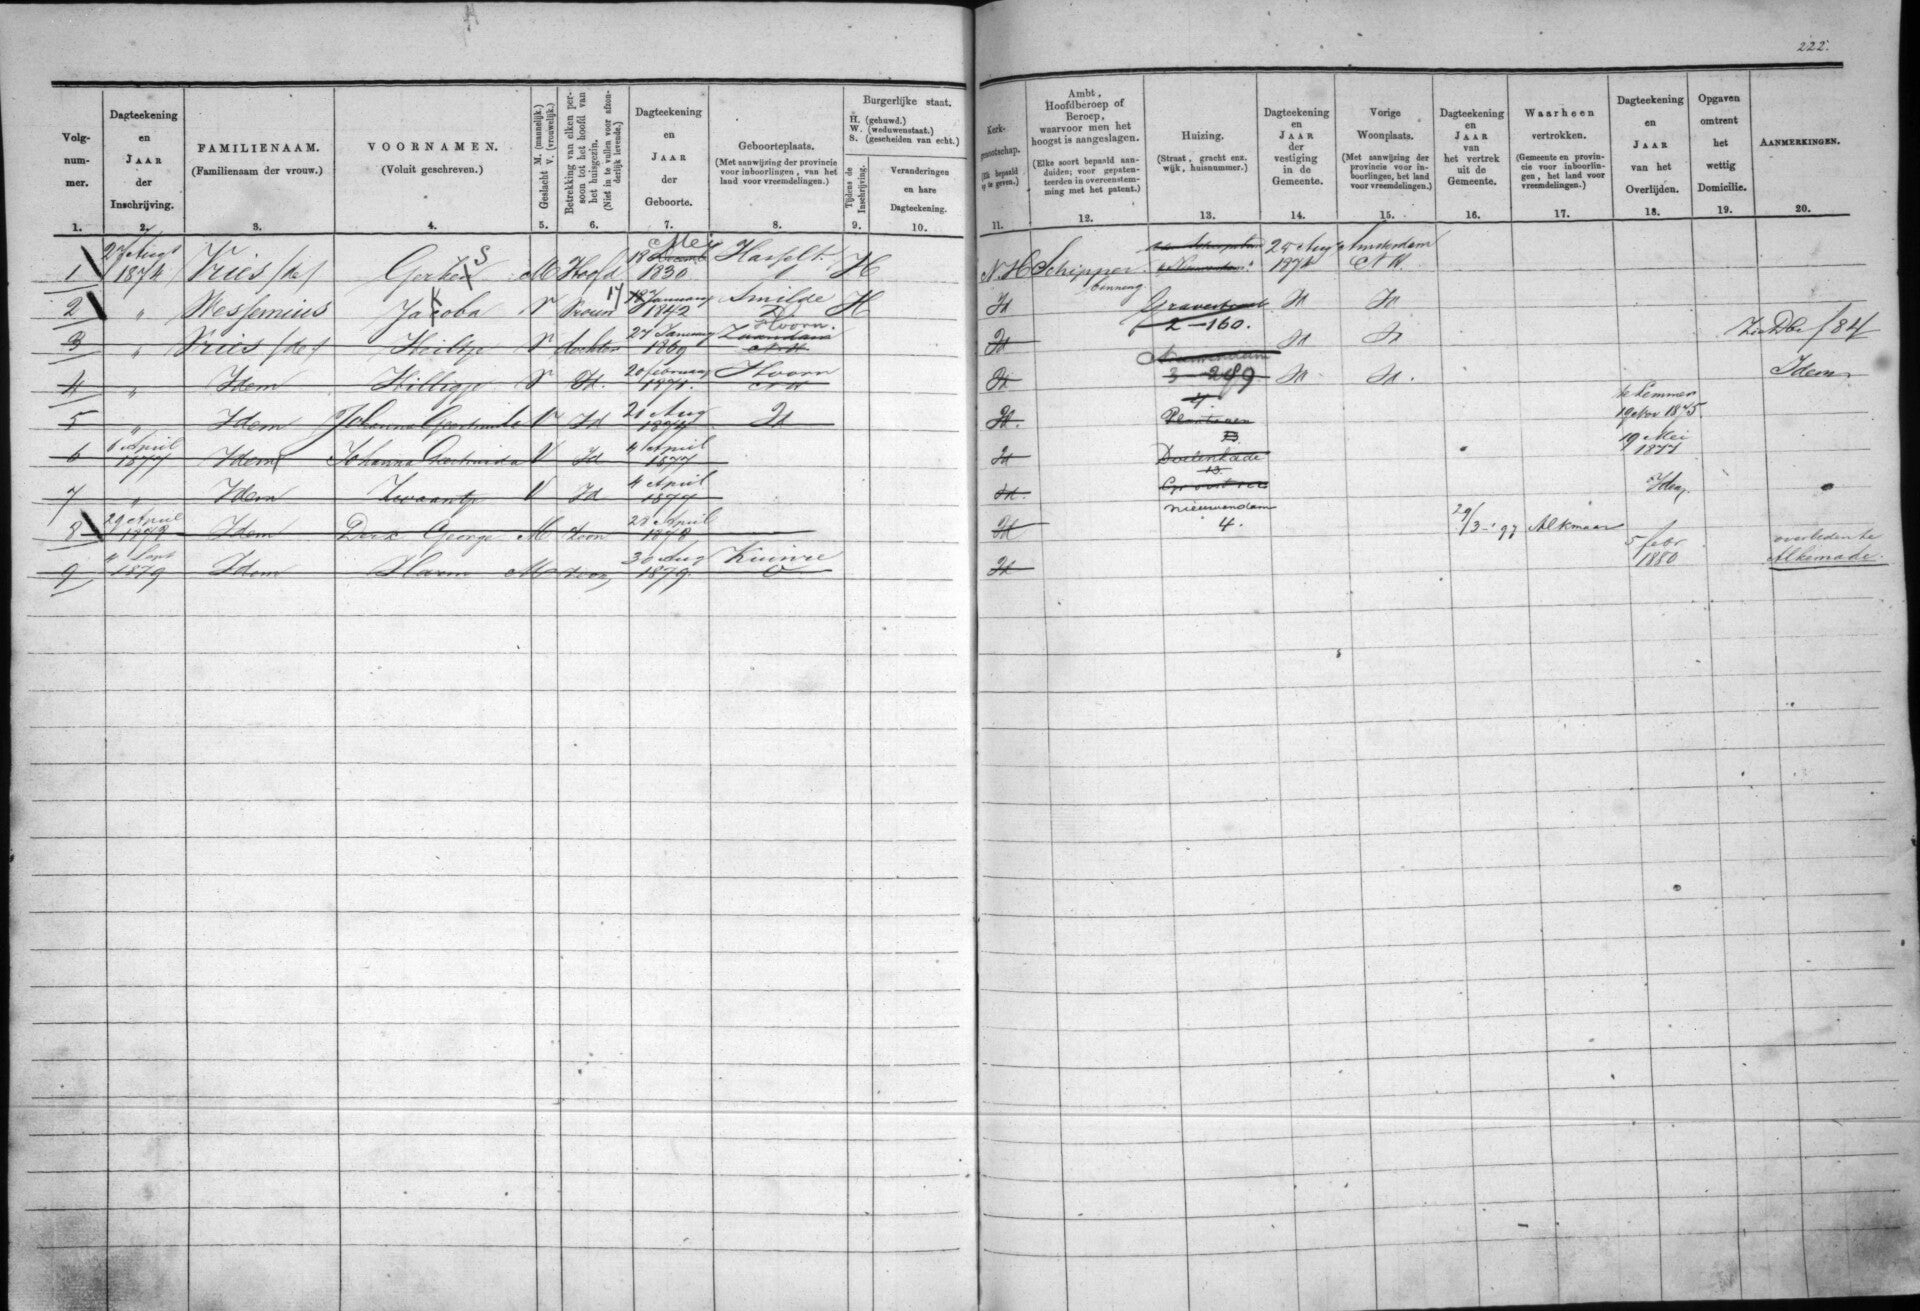 222.
Volg-
num-
mer.
1.
Dagteekening
en
JAAR
der
Inschrijving.
2.
FAMILIENAAM.
(Familienaam der vrouw.)
3.
VOORNAMEN.
(Voluit geschreven.)
4.
Geslacht M. (mannelijk.)
V. (vrouwelijk.)
5.
Betrekking van elken per-
soon tot het hoofd van
het huisgezin.
(Niet in te vullen voor afzon-
derlijk levende.)
6.
Dagteekening
en
JAAR
der
Geboorte.
7.
Geboorteplaats.
(Met aanwijzing der provincie
voor inboorlingen, van het
land voor vreemdelingen.)
8.
Burgerlijke staat.
H. (gehuwd.)
W. (weduwenstaat.)
S. (gescheiden van echt.)
Tijdens de
Inschrijving.
9.
Veranderingen
en hare
Dagteekening.
10.
Kerk-
genootschap.
(Elk bepaald
op te geven.)
11.
Ambt,
Hoofdberoep of
Beroep,
waarvoor men het
hoogst is aangeslagen.
(Elke soort bepaald aan-
duiden; voor gepaten-
teerden in overeenstem-
ming met het patent.)
12.
Huizing.
(Straat, gracht enz.
wijk, huisnummer.)
13.
Dagteekening
en
JAAR
der
vestiging
in de
Gemeente.
14.
Vorige
Woonplaats.
(Met aanwijzing der
provincie voor in-
boorlingen, het land
voor vreemdelingen.)
15.
Dagteekening
en
JAAR
van
het vertrek
uit de
Gemeente.
16.
Waarheen
vertrokken.
(Gemeente en provin-
cie voor inboorlin-
gen, het land voor
vreemdelingen.)
17.
Dagteekening
en
JAAR
van het
Overlijden.
18.
Opgaven
omtrent
het
wettig
Domicilie.
19.
AANMERKINGEN.
20.
1 27 Augs 1874 Vries (de) M Hoofd 18 Mei 1830 Hasselt H N H Schipper 25 Aug 1874 Amsterdam N H
2 " Wessemius Jakoba V Vrouw 17 January 1842 Smilde D H Id binneng Gravestraat 2-160. Id Id
3 " Vries (de) V dochter 27 January 1869 Hoorn Zaandam N H Id Id Id Zie Dbe f 84
4 " Idem V Id. 20 february 1871 Hoorn N H Id Nieuwendam 3 289 Id Id. Idem
5 " Idem Johanna Geertruida V Id 21 Aug 1874 Id Id. 4 te Lemmer 19 Nov 1875
6 6 April 1877 Idem Johanna Geertruida V Id 4 April 1877 Id Doelenkade 13 19 Mei 1877
7 " Idem Zwaantje V Id 4 April 1877 Id. Idem
8 29 April 1878 Idem Dirk George M Zoon 28 April 1878 Id Nieuwendam 4. 29/3-'97 Alkmaar
9 4 Sept 1879 Idem Harm M zoon 30 Aug 1879 Kuinre O Id 5 febr 1880 overleden te Alkemade.